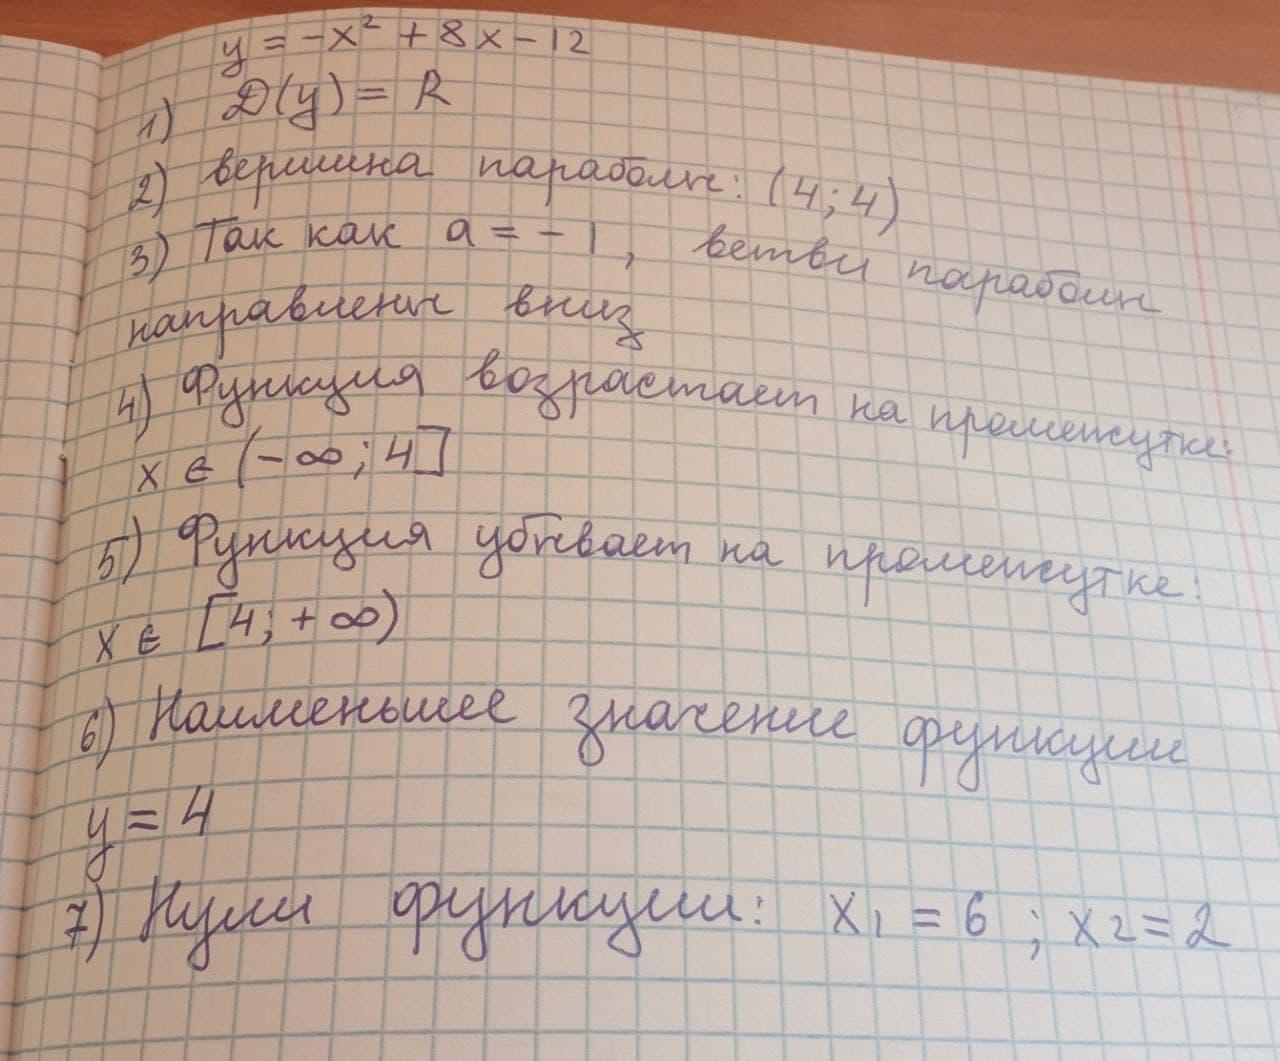 y = -x² + 8x - 12
1) D(y) = R
2) вершина параболы: (4; 4)
3) Так как a = -1, ветви параболы
направлены вниз
4) Функция возрастает на промежутке:
x ∈ (-∞; 4]
5) Функция убывает на промежутке:
x ∈ [4; +∞)
6) Наименьшее значение функции
y = 4
7) Нули функции: x₁ = 6 ; x₂ = 2